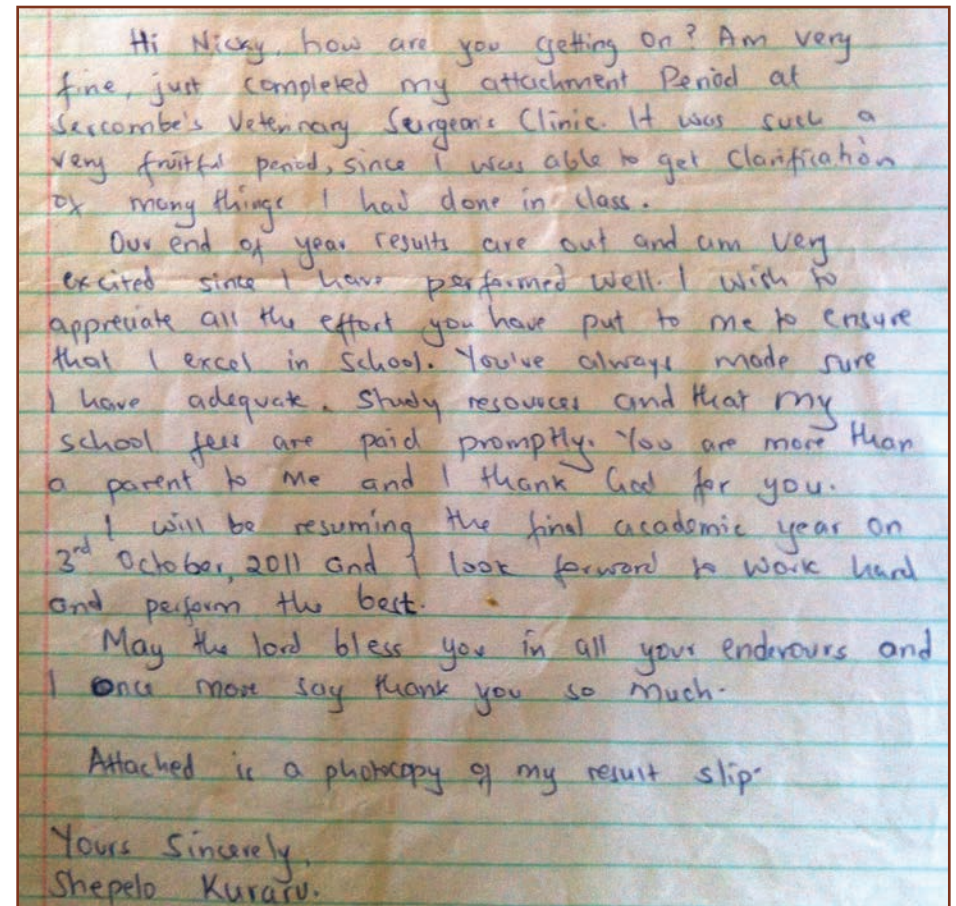 Hi Nicky, how are you getting on? Am very
fine, just completed my attachment Period at
Sercombe's Veterinary Surgeon's Clinic. It was such a
very fruitful period, since I was able to get Clarification
of many things I had done in class.
Our end of year results are out and am very
excited since I have performed well. I wish to
appreciate all the effort you have put to me to ensure
that I excel in School. You've always made sure
I have adequate. Study resources and that my
school fees are paid promptly. You are more than
a parent to me and I thank God for you.
I will be resuming the final academic year on
3rd October, 2011 and I look forward to work hard
and perform the best.
May the lord bless you in all your endevours and
I once more say thank you so much.
Attached is a photocopy of my result slip.
Yours Sincerely,
Shepelo Kuraru.